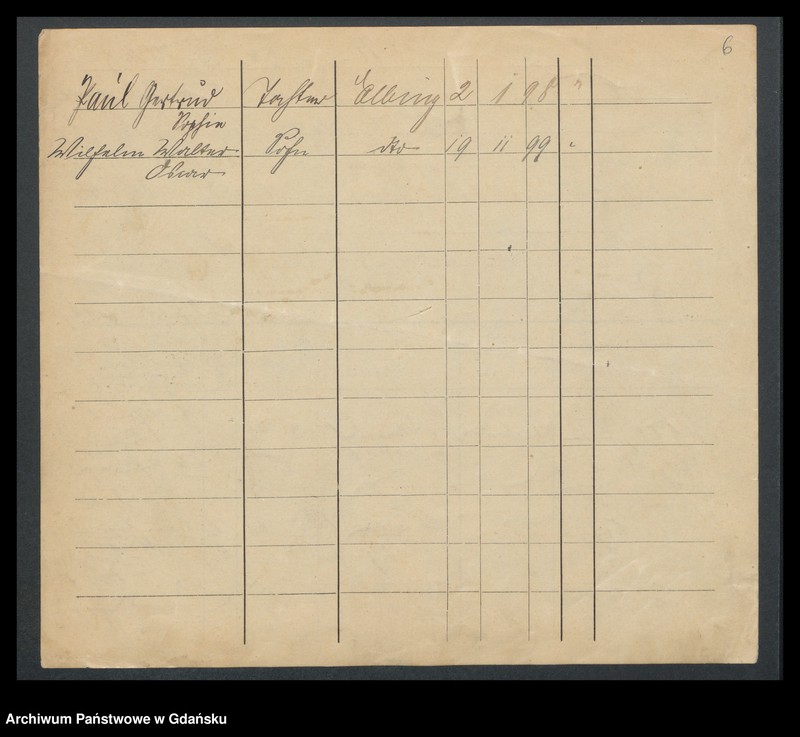 6
Paul Gertrud Tochter Elbing 2 1 98 "
Sophie
Wilhelm Walter Sohn dto 19 11 99 "
Oscar
Archiwum Państwowe w Gdańsku